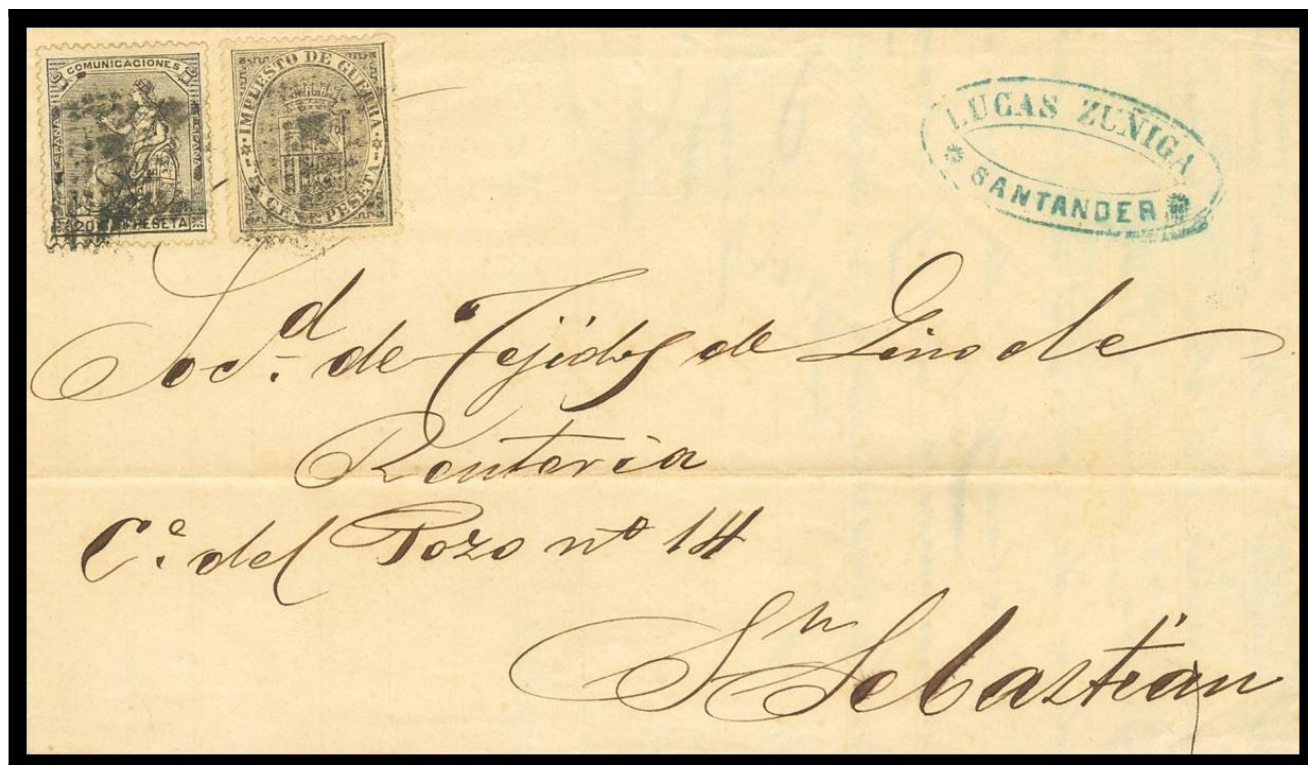 COMUNICACIONES
ESPAÑA
20 PESETA
IMPUESTO DE GUERRA
5 CENS PESETA
LUCAS ZUÑIGA
SANTANDER
Socd. de Tejidos de Lino de
Renteria
Ce. del Pozo no 14
Sn Sebastian